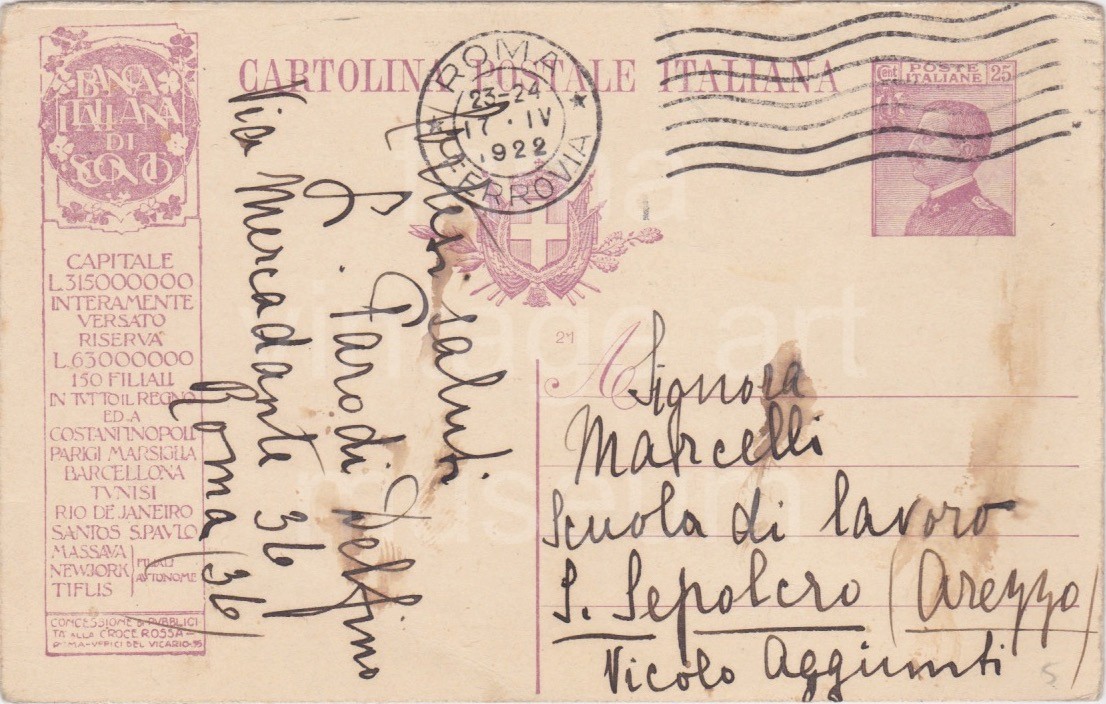 BANCA
ITALIANA
DI
SCONTO
CAPITALE
L.315000000
INTERAMENTE
VERSATO
RISERVA
L.63000000
150 FILIALI
IN TVTTO IL REGNO
ED A
COSTANTINOPOLI
PARIGI MARSIGLIA
BARCELLONA
TVNISI
RIO DE JANEIRO
SANTOS S.PAVLO
MASSAVA
NEWJORK
TIFLIS
FILIALI
AVTONOME
CONCESSIONE DI PVBBLICI
TA ALLA CROCE ROSSA -
ROMA - VFFICI DEL VICARIO - 35
CARTOLINA POSTALE ITALIANA
ROMA
23-24
17 · IV
1922
FERROVIA
Cent. POSTE ITALIANE 25
21
A
Signora
Marcelli
Scuola di lavoro
S. Sepolcro (Arezzo)
Vicolo Aggiunti
5
saluti
Parodi Delfino
Via Mercadante 36
Roma (36)
fama
vintage art
museum